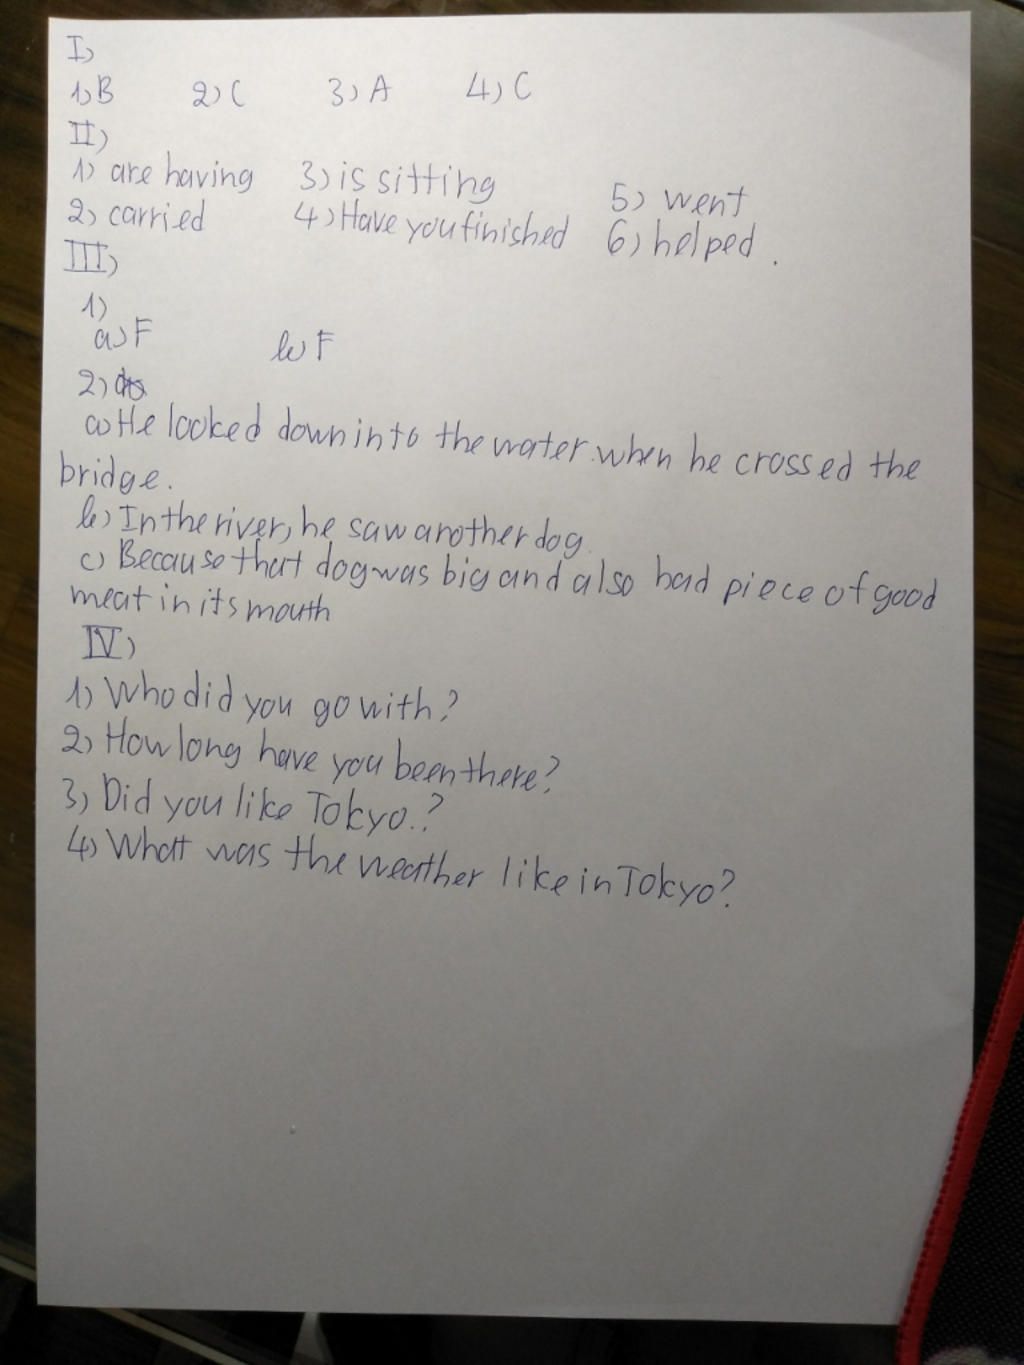 I)
1) B 2) C 3) A 4) C
II)
1) are having 3) is sitting 5) went
2) carried 4) Have you finished 6) helped.
III)
1)
a) F b) F
2)
a) He looked down into the water when he crossed the
bridge.
b) In the river, he saw another dog.
c) Because that dog was big and also had piece of good
meat in its mouth
IV)
1) Who did you go with?
2) How long have you been there?
3) Did you like Tokyo.?
4) What was the weather like in Tokyo?